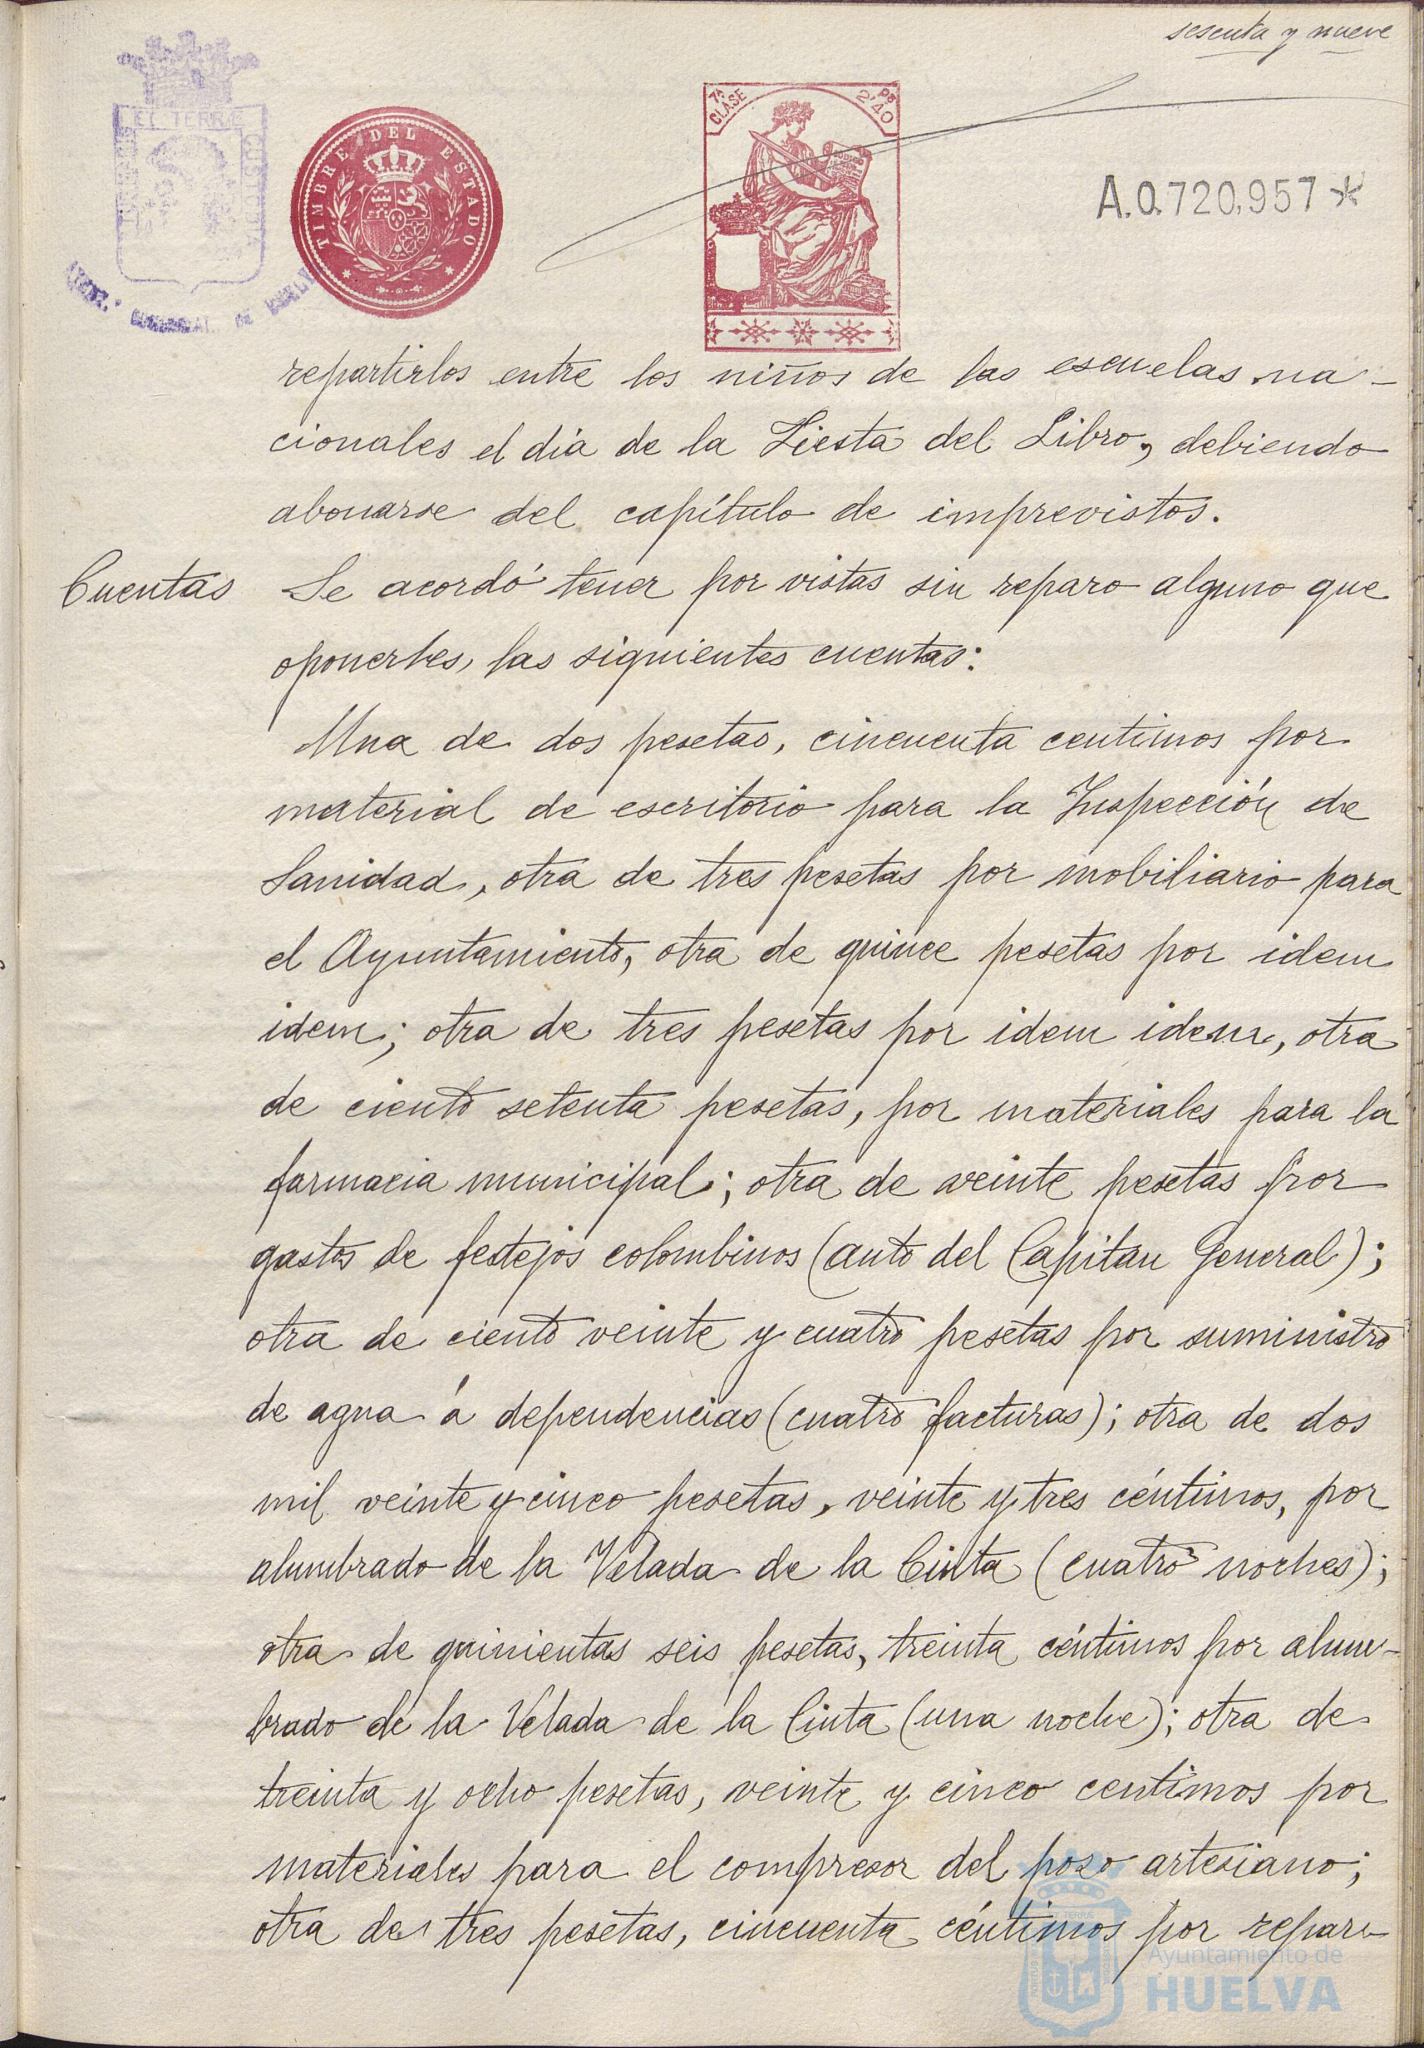 sesenta y nueve
ET TERRÆ
CUSTODIA
TIMBRE DEL ESTADO
7ª CLASE
PS 2'40
A.0.720,957*
repartirlos entre los niños de las escuelas na-
cionales el día de la Fiesta del Libro, debiendo
abonarse del capítulo de imprevistos.
Cuentas
Se acordó tener por vistas sin reparo alguno que
oponerles, las siguientes cuentas:
Una de dos pesetas, cincuenta centimos por
material de escritorio para la Inspección de
Sanidad, otra de tres pesetas por mobiliario para
el Ayuntamiento, otra de quince pesetas por idem
idem; otra de tres pesetas por idem idem, otra
de ciento setenta pesetas, por materiales para la
farmacia municipal; otra de veinte pesetas por
gastos de festejos colombinos (auto del Capitan General);
otra de ciento veinte y cuatro pesetas por suministro
de agua á dependencias (cuatro facturas); otra de dos
mil veinte y cinco pesetas, veinte y tres céntimos, por
alumbrado de la Velada de la Cinta (cuatro noches);
otra de quinientas seis pesetas, treinta céntimos por alum-
brado de la Velada de la Cinta (una noche); otra de
treinta y ocho pesetas, veinte y cinco centimos por
materiales para el compresor del pozo artesiano;
otra de tres pesetas, cincuenta céntimos por repara-
Ayuntamiento de
HUELVA